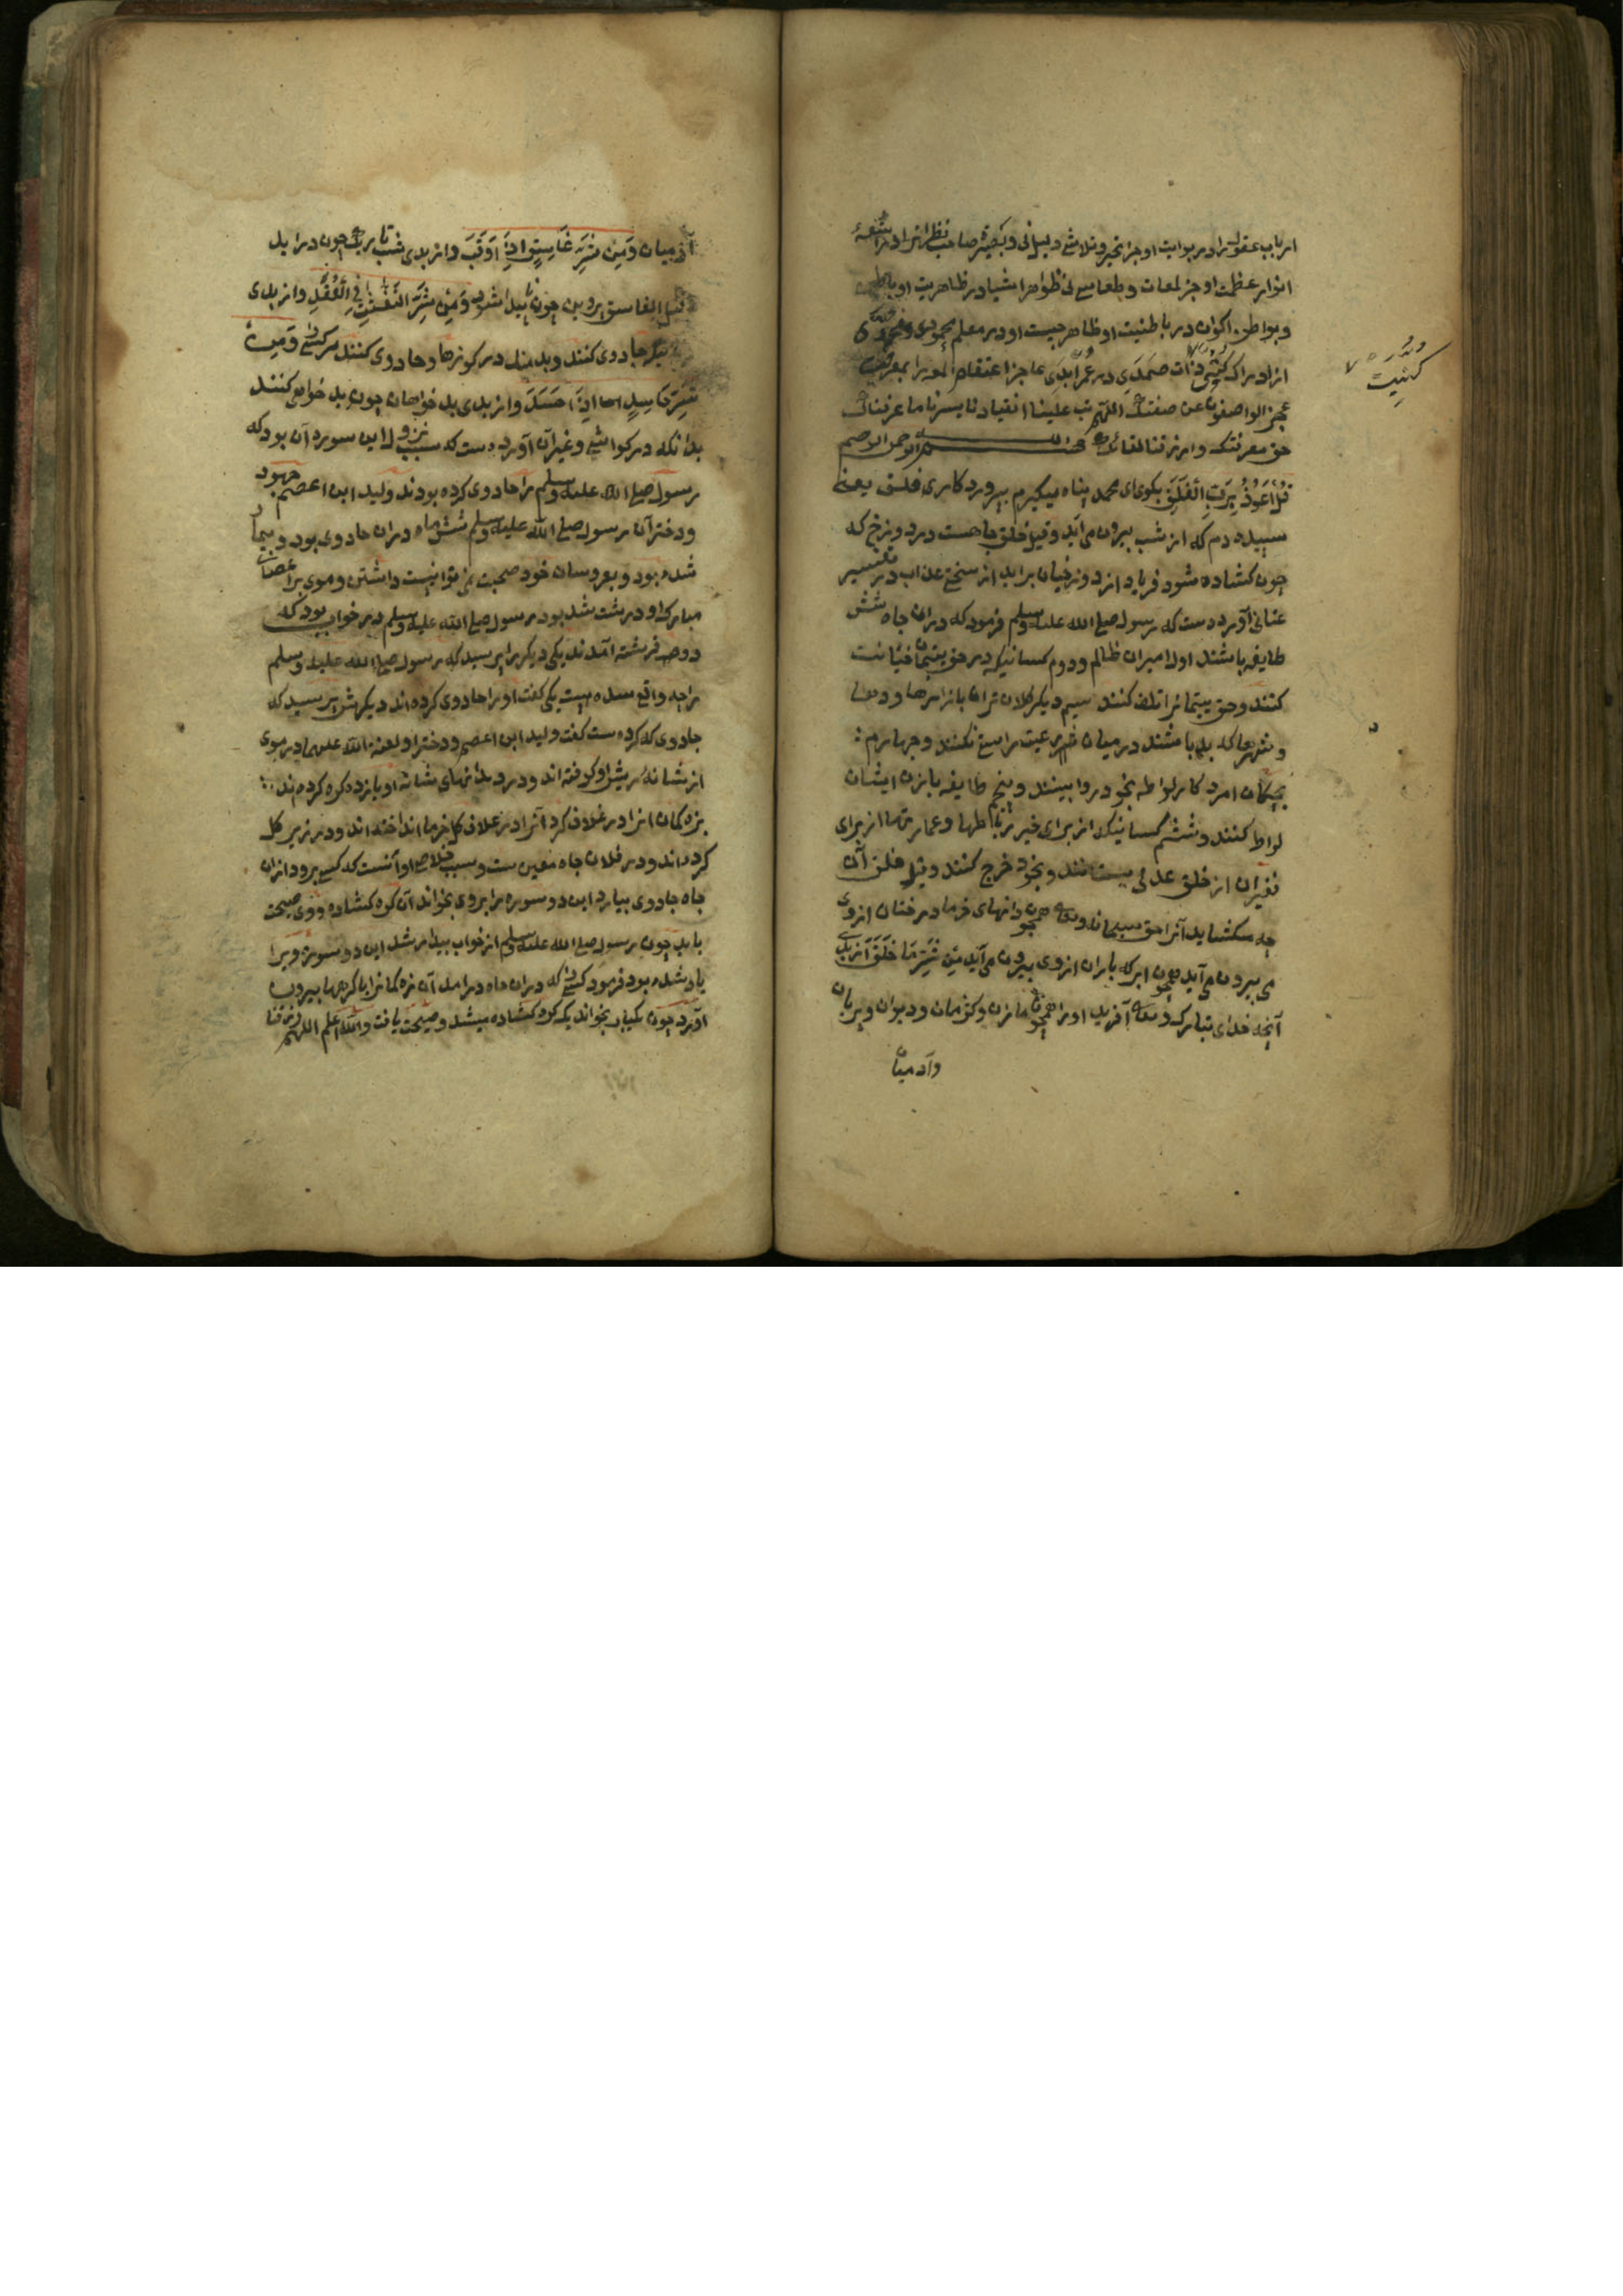 ارباب عقول را در بوابت او جز تحیر و تلاشی دلیل نی و بصیرت صاحب نظران را در اشعهٔ
انوار عظمت او جز لمعات و طعامیع نی ظواهر اشیا در ظاهریت او باطن
و بواطن اکوان در باطنیت او ظاهر چیست او در معلم
از ادراک کنه ذات صمدی در ابدی عاجز اعتقام الوری بمغفرتک
عجز الواصفون عن صفتک اللهم تب علینا انقیادنا یسرنا ما عرفناک
حق معرفتک وارزقنا لقائک بسم الله الرحمن الرحیم
قل اعوذ برب الفلق بکوی ای محمد پناه میکیرم بپروردکاری فلق یعنی
سپیده دم که از شب بیرون می آید و قیل فلق چاهست در دوزخ که
چون کشاده شود فریاد از دوزخیان براید از سختی عذاب در تفسیر
عتابی آورده ست که رسول صلی الله علیه وسلم فرمود که دران چاه شش
طایفه باشند اول امیران ظالم و دوم کسانیکه در حق یتیمان خیانت
کنند و حق یتیمانرا تلف کنند سیم دیکر کلان تران بازارها و دیها
و شهرها که بدباشند در میان رعیت راستی نکنند و چهارم :
بچکان امرد کار لواطه بخود روا بینند و پنجم طایفه بازن ایشان
لواط کنند و ششم کسانیکه از برای خیر رباطها و عمارتها از برای
فقیران از خلق عدلی بستانند و بخود خرج کنند و قیل فلق آن
چه بکشاید آنرا حق سبحانه وتعالی همچون دانهای خرما درختان ازوی
می بیرون می آید همچون ابر که باران ازوی بیرون می آید من شر ما خلق از بدی
آنچه خدای تبارک وتعالی آفریده او را همچون ماران و کژدمان و دیوان و پریان
وآدمیان
کنیت
آدمیان ومن شر غاسق اذا وقب و از بدی شب تاریک چون دراید
قیل الغاسق پروین چون ناپیدا شود ومن شر النفثت فی العقد و از بدی
جادوی کنند و بدمند در کوزها و جادوی کنند مر کسی را ومن
شر حاسد اذا حسد و از بدی بد خواهان چون بد خواهی کنند
بدانکه در کواشی و غیر آن آورده ست که سبب نزول این سوره آن بود که
رسول صلی الله علیه وسلم را جادوی کرده بودند ولید ابن اعصم جهود
و دختر آن رسول صلی الله علیه وسلم شش ماه دران جادوی بود و بیمار
شده بود و بعروسان خود صحبت نمی توانیست داشتن و موی براعضات
مبارک او درشت شد بود رسول صلی الله علیه وسلم در خواب بود که
دو فرشته آمدند یکی دیکر را پرسید که رسول صلی الله علیه وسلم
را چه واقع شده ست یکی کفت او را جادوی کرده اند دیکرش پرسید که
جادوی که کرده ست کفت ولید ابن اعصم و دختر او لعنة الله علیهما در موی
از شانه ریش او کرفته اند و در دندانهای شانه او یازده کره کرده اند :
بزه کمان انرا در غلاف کرد آنرا در غلاف کل خرما انداخته اند و در زیر کل
کرده اند و در فلان چاه معین ست و سبب خلاص او آنست که کسی برود ازان
چاه جادوی بیارد این دو سوره را بروی بخواند آن کره کشاده و وی صحت
یابد چون رسول صلی الله علیه وسلم از خواب بیدار شد این دو سوره ویرا
یاد شده بود فرمود کسی را که دران چاه درامد آن زه کمانرا با کرهها بیرون
آورد چون یکبار بخواند یکه کره کشاده میشد و صحت یافت والله اعلم اللهم ارزقنا